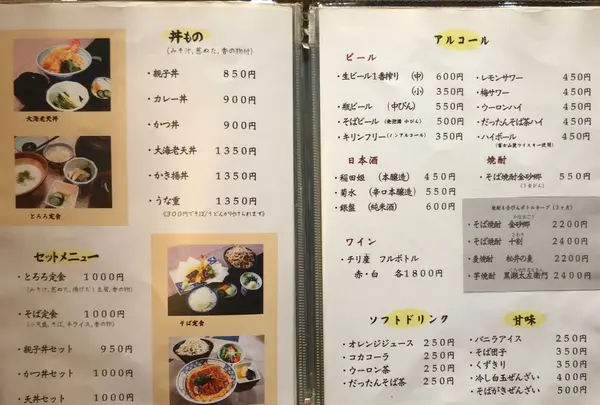 丼もの
(みそ汁,茎わた,香の物付)
・親子丼 850円
・カレー丼 900円
・かつ丼 900円
・大海老天丼 1350円
・かき揚丼 1350円
・うな重 1350円
(300円でそば/うどんが付けられます)
大海老天丼
とろろ定食
セットメニュー
・とろろ定食 1000円
・そば定食 1000円
(小天盛,そば,半ライス,香の物)
・親子丼セット 950円
・かつ丼セット 1000円
・天丼セット 1000円
そば定食
アルコール
ビール
・生ビール1番搾り (中) 600円
(小) 350円
・瓶ビール (中びん) 550円
・そばビール 500円
・キリンフリー(ノンアルコール) 350円
・レモンサワー 450円
・梅サワー 450円
・ウーロンハイ 450円
・だったんそば茶ハイ 450円
・ハイボール 450円
(富士山麓ウイスキー使用)
日本酒
・稲田姫 (本醸造) 450円
・菊水 (辛口本醸造) 550円
・銀盤 (純米酒) 600円
焼酎
・そば焼酎金砂郷 550円
ワイン
・チリ産 フルボトル
赤・白 各1800円
・そば焼酎 金砂郷 2200円
・そば焼酎 十割 2400円
・麦焼酎 松井の麦 2200円
・芋焼酎 黒瀬太左衛門 2400円
ソフトドリンク
・オレンジジュース 250円
・コカコーラ 250円
・ウーロン茶 250円
・だったんそば茶 250円
甘味
・バニラアイス 250円
・そば団子 350円
・くずきり 350円
・冷し白玉ぜんざい 400円
・そばがきぜんざい 500円